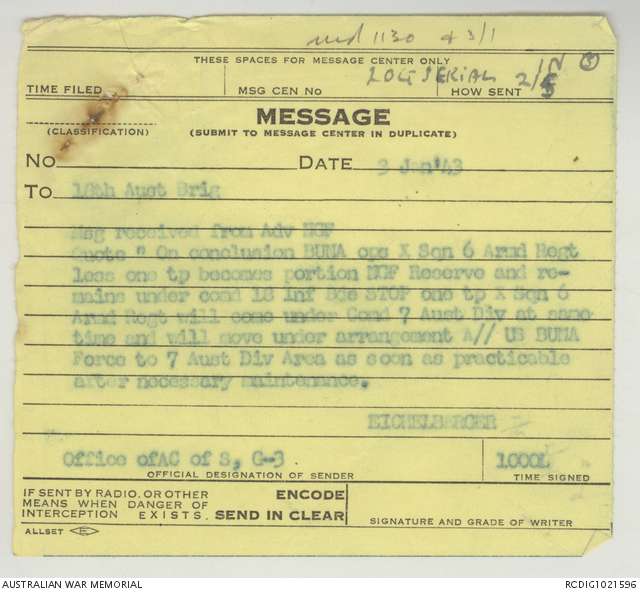 1130 3/1
THESE SPACES FOR MESSAGE CENTER ONLY
LOG SERIAL 2/
TIME FILED MSG CEN No HOW SENT
MESSAGE
(CLASSIFICATION) (SUBMIT TO MESSAGE CENTER IN DUPLICATE)
No DATE 3 Jan'43
To 18th Aust Brig
Msg received from Adv NGF
Quote " On conclusion BUNA ops X Sqn 6 Armd Regt
less one tp becomes portion NGF Reserve and re-
mains under comd 18 Inf Bde STOP one tp X Sqn 6
Armd Regt will come under Comd 7 Aust Div at same
time and will move under arrangement A// US BUNA
Force to 7 Aust Div Area as soon as practicable
after necessary maintenance.
EICHELBERGER
Office ofAC of S, G-3 1000L
OFFICIAL DESIGNATION OF SENDER TIME SIGNED
IF SENT BY RADIO, OR OTHER ENCODE
MEANS WHEN DANGER OF
INTERCEPTION EXISTS. SEND IN CLEAR SIGNATURE AND GRADE OF WRITER
ALLSET E
AUSTRALIAN WAR MEMORIAL RCDIG1021596